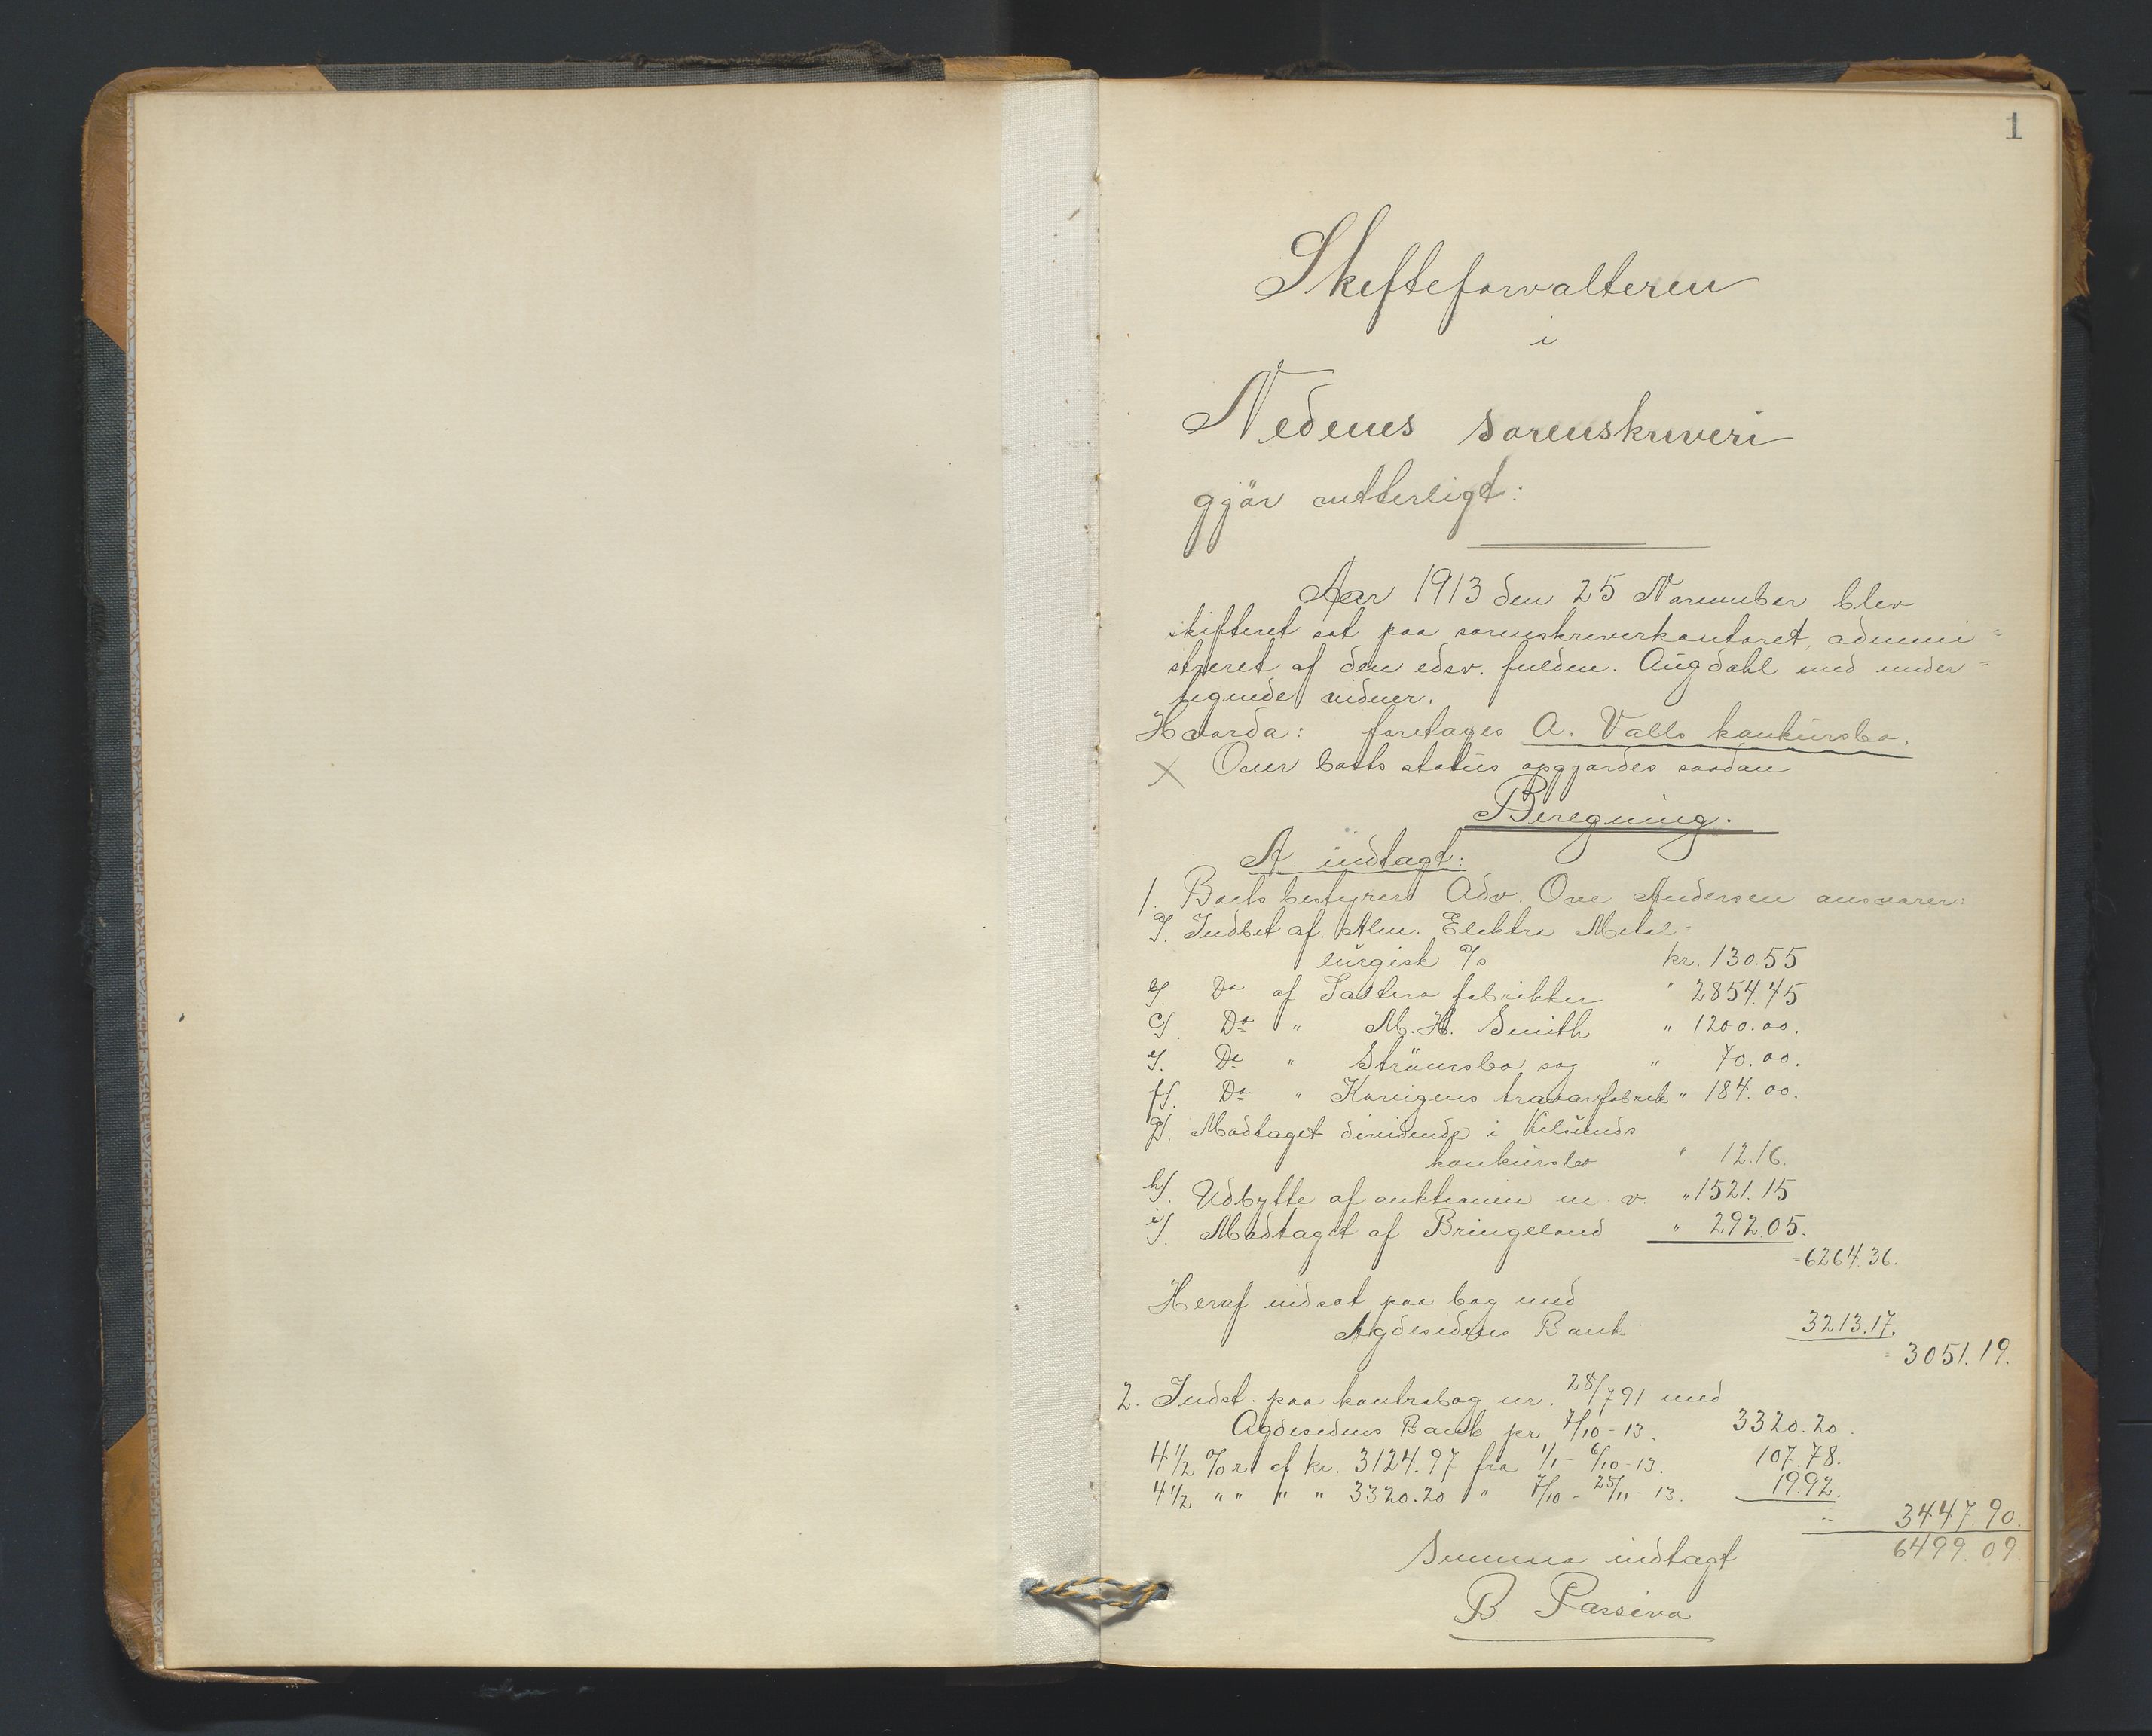 1
Skifteforvalteren
i
Nedenes sorenskriveri
gjör vitterligt:
Aar 1913 den 25 November blev
skifteret sat paa sorenskriverkontoret, admini=
streret af den edsv. fuldm. Augdahl med under=
tegnede vidner.
Hvorda: foretages A. Valls konkursbo.
Over boets status opgjordes saadan
Beregning.
A. indtægt:
1. Boets bestyrer Adv. Ove Andersen ansvarer:
a/. Indbet af. Alm. Elektro Metal-
lurgisk a/s kr. 130.55
b/. Do af Saltera fabrikker " 2854.45
c/. Do " M. H. Smith " 1200.00.
e/. Do " Strömsbo sag " 70.00.
f/. Do " Kongens travarefabrik " 184.00.
g/. Modtaget dividende i Kilsunds
konkursbo " 12.16.
h/. Udbytte af auktionen m. v. " 1521.15
i/. Modtaget af Bringeland " 292.05.
= 6264.36.
Heraf indsat paa bog med
Agdesidens Bank 3213.17.
= 3051.19.
2. Indst. paa kontrabog nr. 28/791 med
Agdesidens Bank pr 7/10-13. 3320.20.
4 1/2 % r. af kr. 3124.97 fra 1/1 - 6/10-13. 107.78.
4 1/2 " " " " 3320.20 " 7/10 - 25/11-13. 19.92.
3447.90.
Summa indtægt 6499.09.
B. Passiva